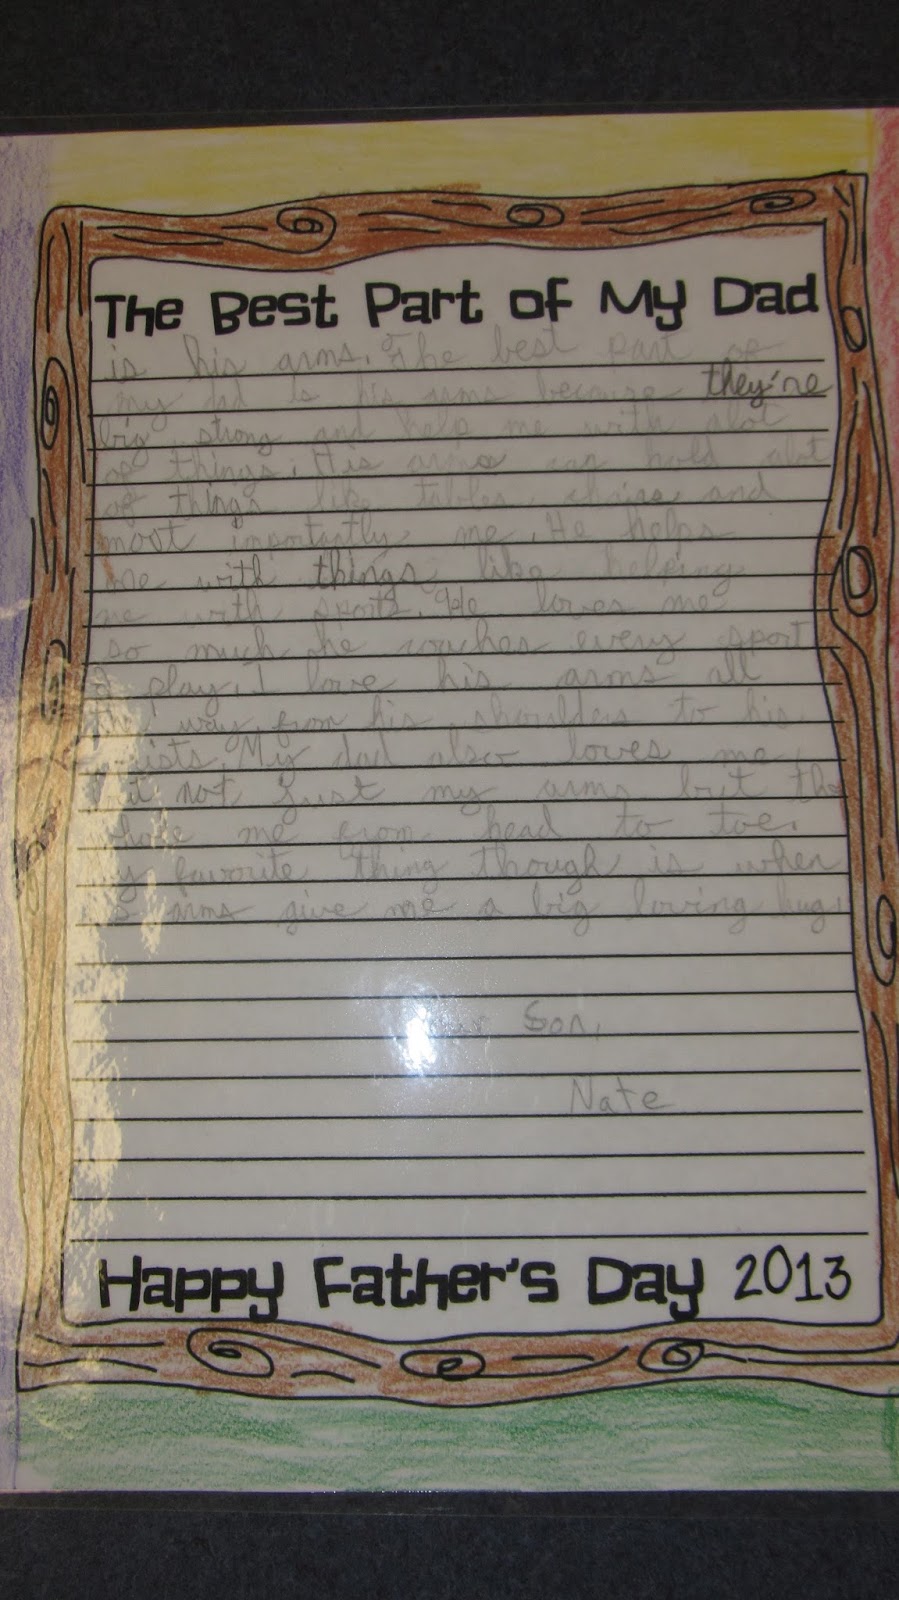 The Best Part of My Dad
is his arms. The best part of
my dad is his arms because they're
big strong and help me with alot
of things. His arms can hold alot
of things like tables, chairs and
most importantly me. He helps
me with things like helping
me with sports. He loves me
so much he coaches every sport
I play. I love his arms all
the way from his shoulders to his
wrists. My dad also loves me,
but not just my arms but the
whole me from head to toe.
My favorite thing though is when
his arms give me a big loving hug.
Your Son,
Nate
Happy Father's Day 2013